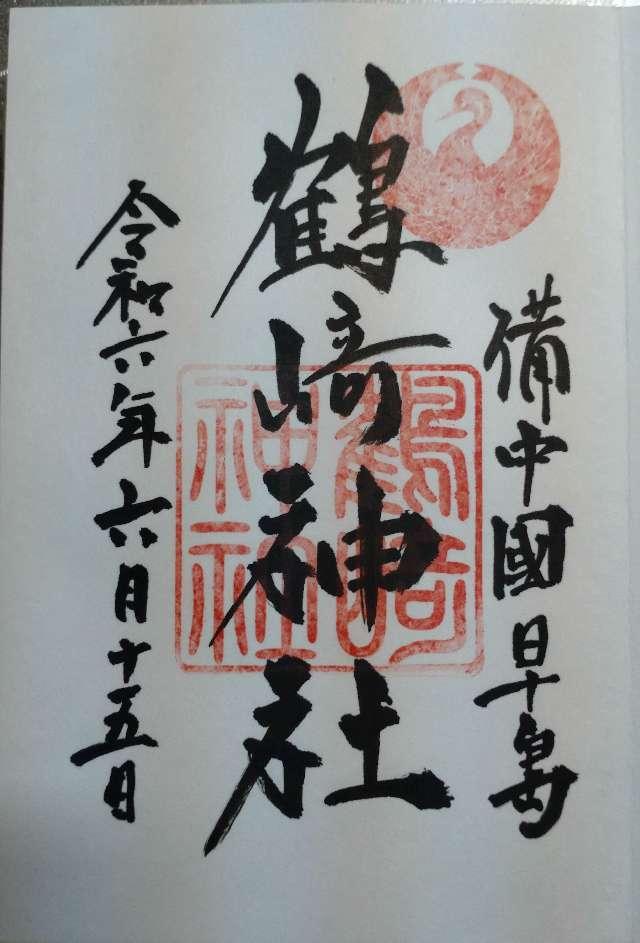 備中國早島
鶴﨑神社
令和六年六月十五日
鶴崎
神社